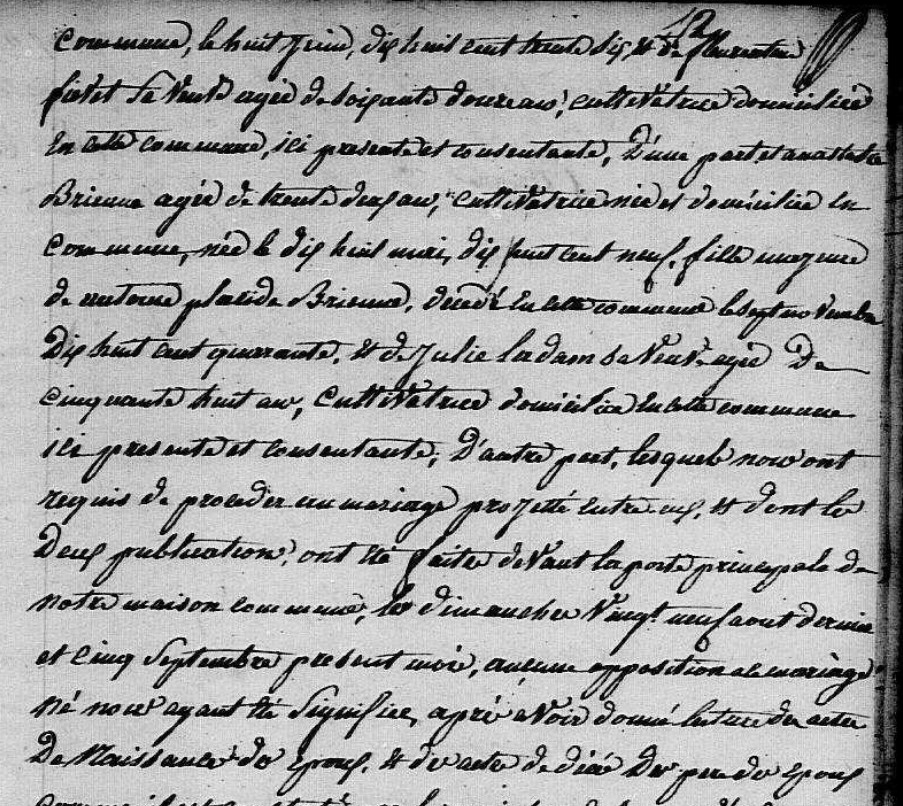 12
commune, le huit juin, dix huit cent trente six, et de florentine
sa veuve agée de soixante douze ans, cultivatrice domiciliée
En cette commune, ici presente et consentante, D'une part et anastasie
Brienne agée de trente deux ans, cultivatrice née et domiciliée en
commune, née le dix huit mai, dix huit cent neuf, fille majeure
de antoine placide Brienne, décédé En cette commune le sept novembre
Dix huit cent quarante, et de Julie Ledam sa veuve agée De
cinquante huit ans, cultivatrice domiciliée En cette commune
ici presente et consentante, D'autre part, lesquels nous ont
requis de proceder au mariage projetté entre eux, et dont les
Deux publications, ont été faites devant la porte principale de
notre maison commune, les dimanches Vingt neuf aout dernier
et cinq Septembre present mois, aucune opposition au mariage
Né nous ayant été Signifiée, après avoir donné lecture des actes
De Naissance des Epoux, et des actes de décé Des peres des Epoux